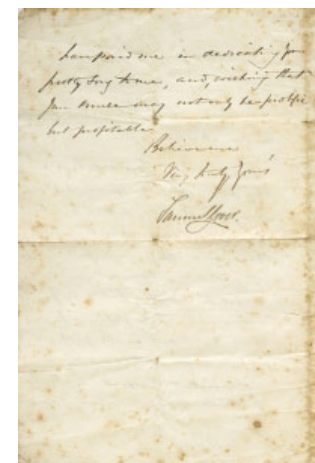 have paid me in dedicating your
pretty song to me, and, wishing that
your muse may not only be prolific
but profitable
Believe me
Very truly yours
Samuel Lover